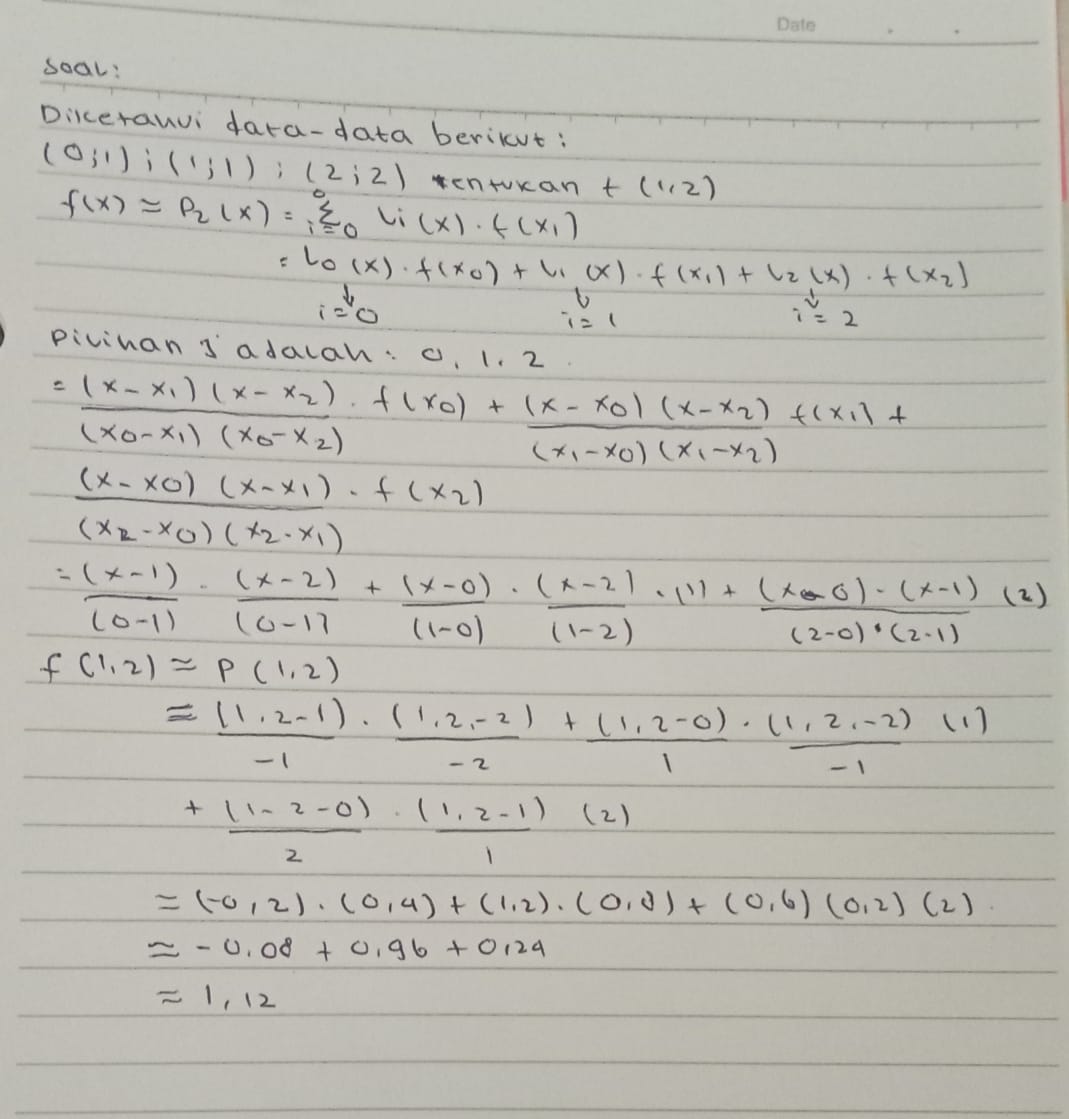 Date
Soal:
Diketahui data-data berikut:
(0;1) ; (1;1) ; (2;2) tentukan f (1,2)
f(x) ≈ P₂(x) = Σ i=0 Li(x) . f(x₁)
= L₀(x) . f(x₀) + L₁(x) . f(x₁) + L₂(x) . f(x₂)
↓ i=0 ↓ i=1 ↓ i=2
Pilihan J adalah : 0, 1, 2
= (x-x₁)(x-x₂) / (x₀-x₁)(x₀-x₂) . f(x₀) + (x-x₀)(x-x₂) / (x₁-x₀)(x₁-x₂) f(x₁) +
(x-x₀)(x-x₁) / (x₂-x₀)(x₂-x₁) . f(x₂)
= (x-1) / (0-1) . (x-2) / (0-1) + (x-0) / (1-0) . (x-2) / (1-2) . (1) + (x-0) . (x-1) / (2-0) . (2-1) (2)
f(1,2) ≈ P(1,2)
= (1,2-1) / -1 . (1,2-2) / -2 + (1,2-0) / 1 . (1,2-2) / -1 (1)
+ (1-2-0) / 2 . (1,2-1) / 1 (2)
= (-0,2) . (0,4) + (1,2) . (0,8) + (0,6) (0,2) (2)
≈ -0,08 + 0,96 + 0,24
≈ 1,12